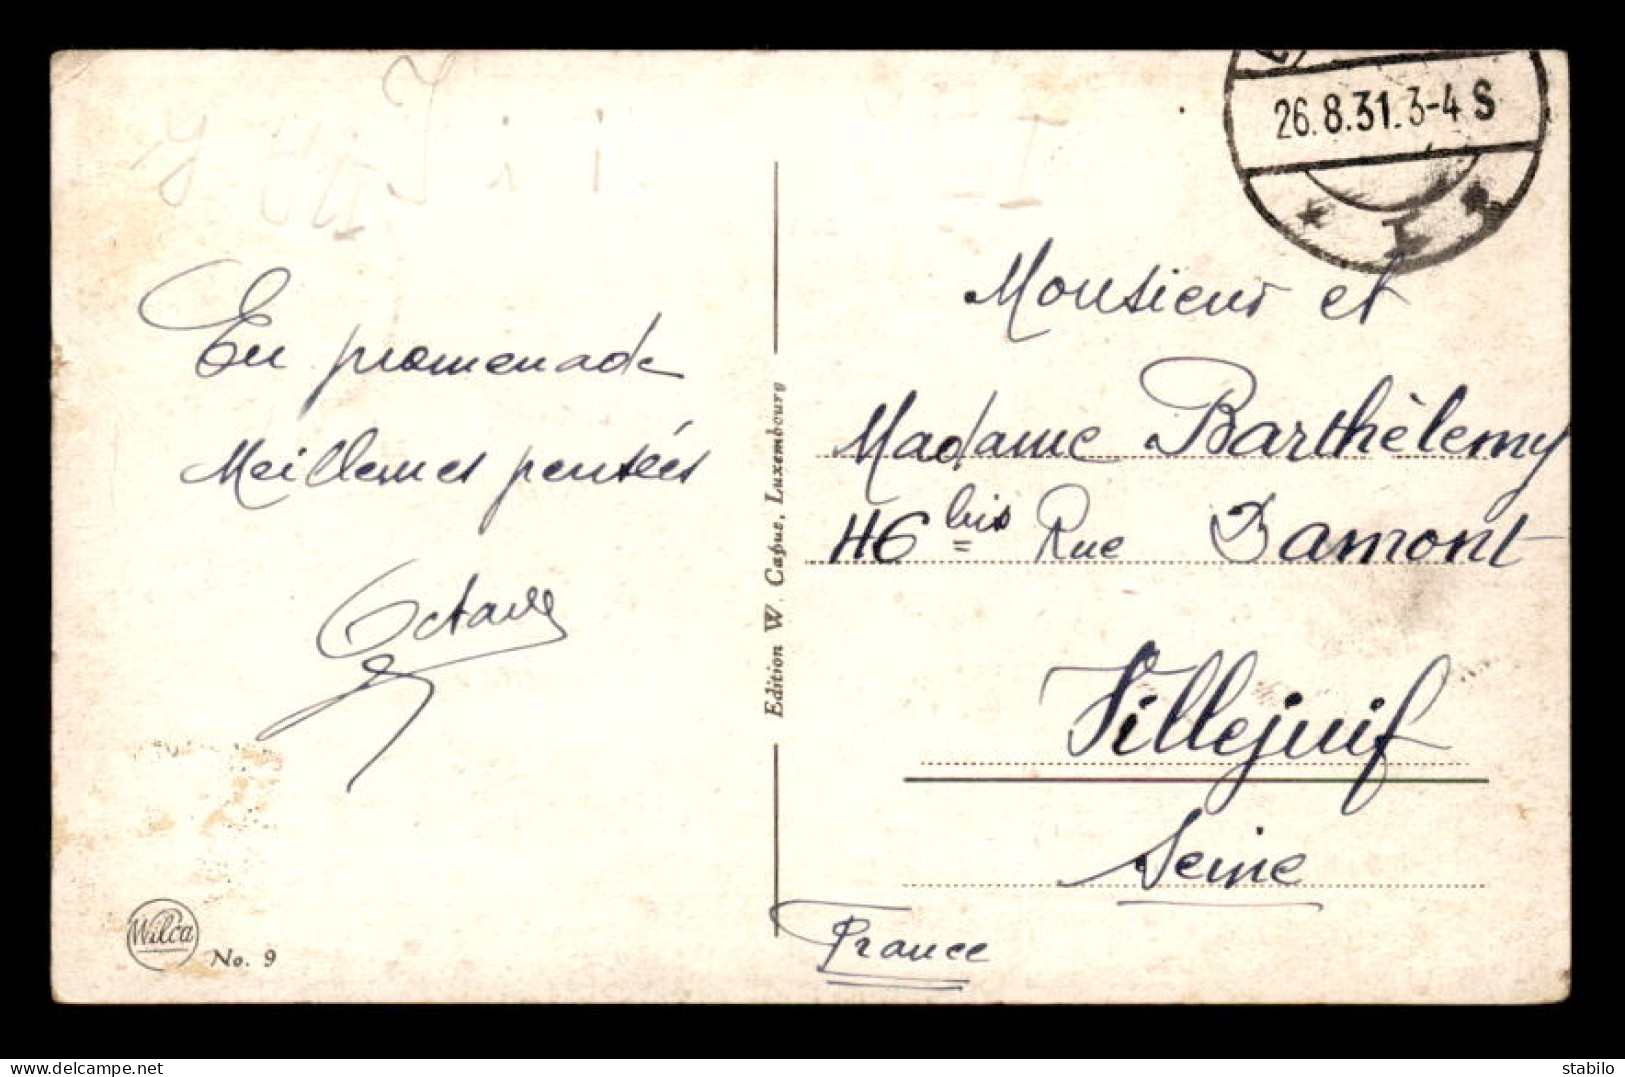 26.8.31. 3-4 S
En promenade
Meilleures pensées
Octave
Edition W. Capus, Luxembourg
Monsieur et
Madame Barthèlemy
46 bis Rue Damont
Villejuif
Seine
France
Wilca
No. 9
delcampe.net
stabilo